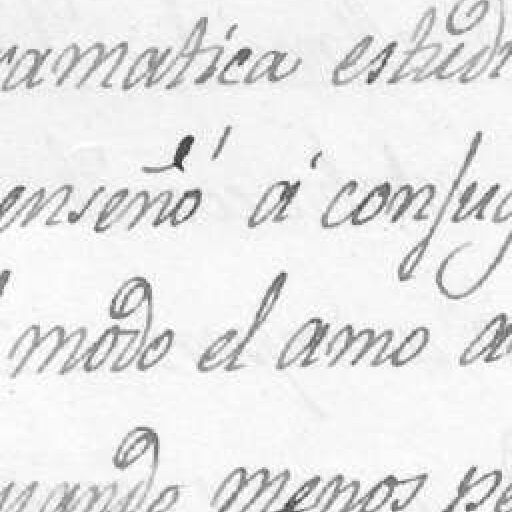 ramatica estudi
enseñó á conjug
modo el amo a
uando menos pe